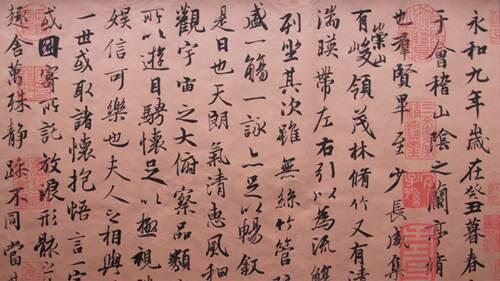 永和九年歲在癸丑暮春
于會稽山陰之蘭亭脩
也羣賢畢至少長咸集
有崇山峻領茂林脩竹又有清
湍暎帶左右引以為流觴
列坐其次雖無絲竹管
盛一觴一詠亦足以暢敘
是日也天朗氣清惠風和
觀宇宙之大俯察品類
所以遊目騁懷足以極視
娛信可樂也夫人之相與
一世或取諸懷抱悟言一
或因寄所託放浪形骸之
趣舍萬殊靜躁不同當